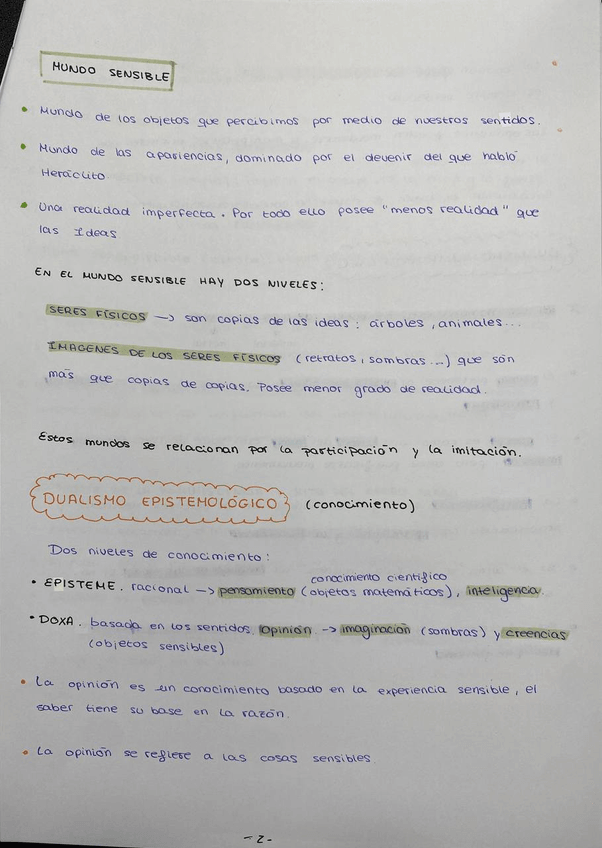 MUNDO SENSIBLE
• Mundo de los objetos que percibimos por medio de nuestros sentidos.
• Mundo de las apariencias, dominado por el devenir del que habló
Heráclito
• Una realidad imperfecta. Por todo ello posee "menos realidad" que
las Ideas
EN EL MUNDO SENSIBLE HAY DOS NIVELES:
SERES FÍSICOS → son copias de las ideas: árboles, animales...
IMÁGENES DE LOS SERES FÍSICOS (retratos, sombras...) que son
más que copias de copias. Posee menor grado de realidad.
Estos mundos se relacionan por la participación y la imitación.
DUALISMO EPISTEMOLÓGICO (conocimiento)
Dos niveles de conocimiento:
conocimiento científico
• EPISTEME. racional → pensamiento (objetos matemáticos), inteligencia.
• DOXA. basada en los sentidos. Opinión → imaginación (sombras) y creencias
(objetos sensibles)
• La opinión es un conocimiento basado en la experiencia sensible, el
saber tiene su base en la razón.
• La opinión se refiere a las cosas sensibles.
-2-